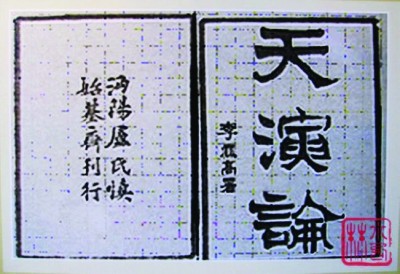 天演論
李高署
沔陽盧氏慎
始基齋刊行